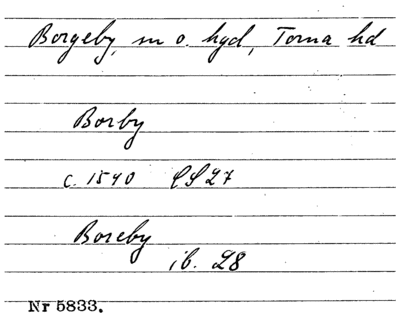 Borgeby, sn o. hgd, Torna hd
Borby
c. 1540 CS 27
Boreby
ib. 28
Nr 5833.